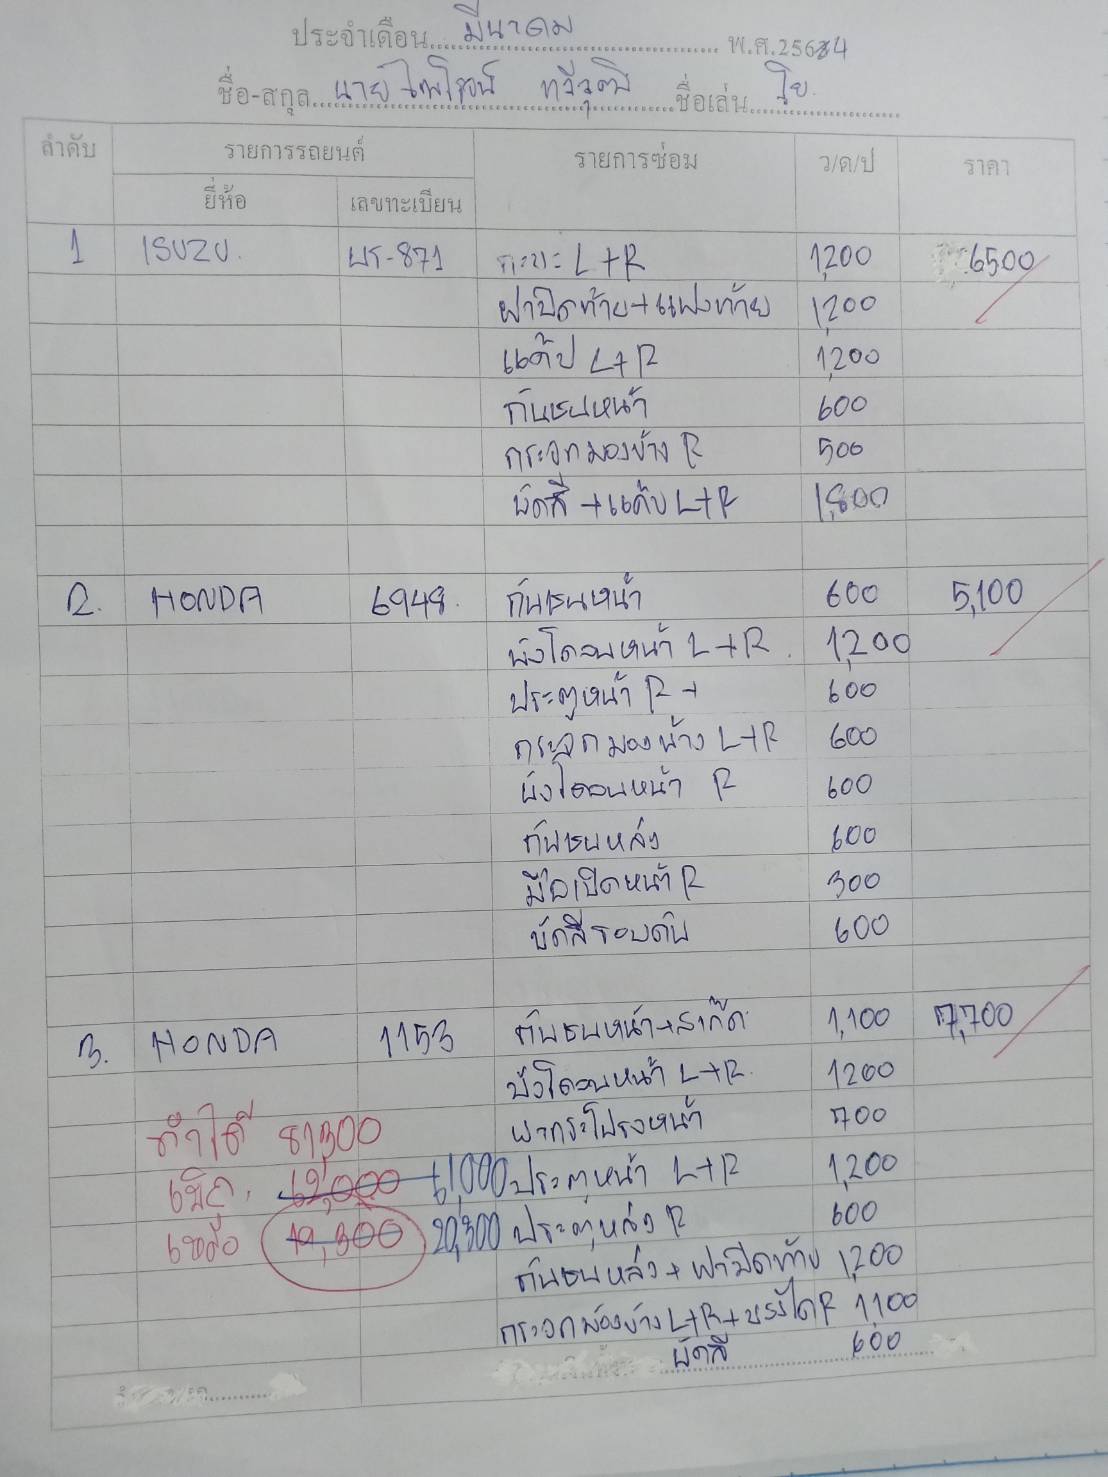 ประจำเดือน มีนาคม พ.ศ.2564
ชื่อ-สกุล นาย ไพโรจน์ ทวีวุฒิ ชื่อเล่น
ลำดับ รายการรถยนต์ รายการซ่อม ว/ด/ป ราคา
ยี่ห้อ เลขทะเบียน
1 ISUZU. บร-871 กะบะ L+R 1,200 6500
ฝาปิดท้าย+แผงท้าย 1,200
แค๊ป L+R 1,200
กันชนหน้า 600
กระจกมองข้าง R 500
ขัดสี +แค๊บ L+R 1,800
2. HONDA 6948. กันชนหน้า 600 5,100
บังโคลนหน้า L+R. 1,200
ประตูหน้า R + 600
กระจกมองข้าง L+R 600
บังโคลนหน้า R 600
กันชนหลัง 600
มือเปิดหน้า R 300
ขัดสีรอบคัน 600
3. HONDA 1153 กันชนหน้า+สเกิ๊ต 1,100 7,700
บังโคลนหน้า L+R. 1200
ฝากระโปรงหน้า 700
ทำได้ 81,300
เบิก. 62,000 61,000 ประตูหน้า L+R 1,200
เหลือ 19,300 20,300 ประตูหลัง R 600
กันชนหลัง + ฝาปิดท้าย 1,200
กระจกมองข้าง L+R+บรรได R 1,100
ขัดสี 600